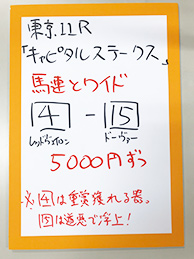 東京11R
「キャピタルステークス」
馬連とワイド
4 - 15
レッドヴェイロン ドーヴァー
5000円ずつ
※4は重賞獲れる器。
15は道悪で浮上!